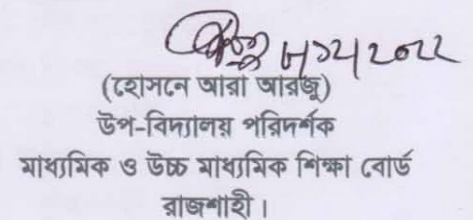 ৮/১২/২০২২
(হোসনে আরা আরজু)
উপ-বিদ্যালয় পরিদর্শক
মাধ্যমিক ও উচ্চ মাধ্যমিক শিক্ষা বোর্ড
রাজশাহী।